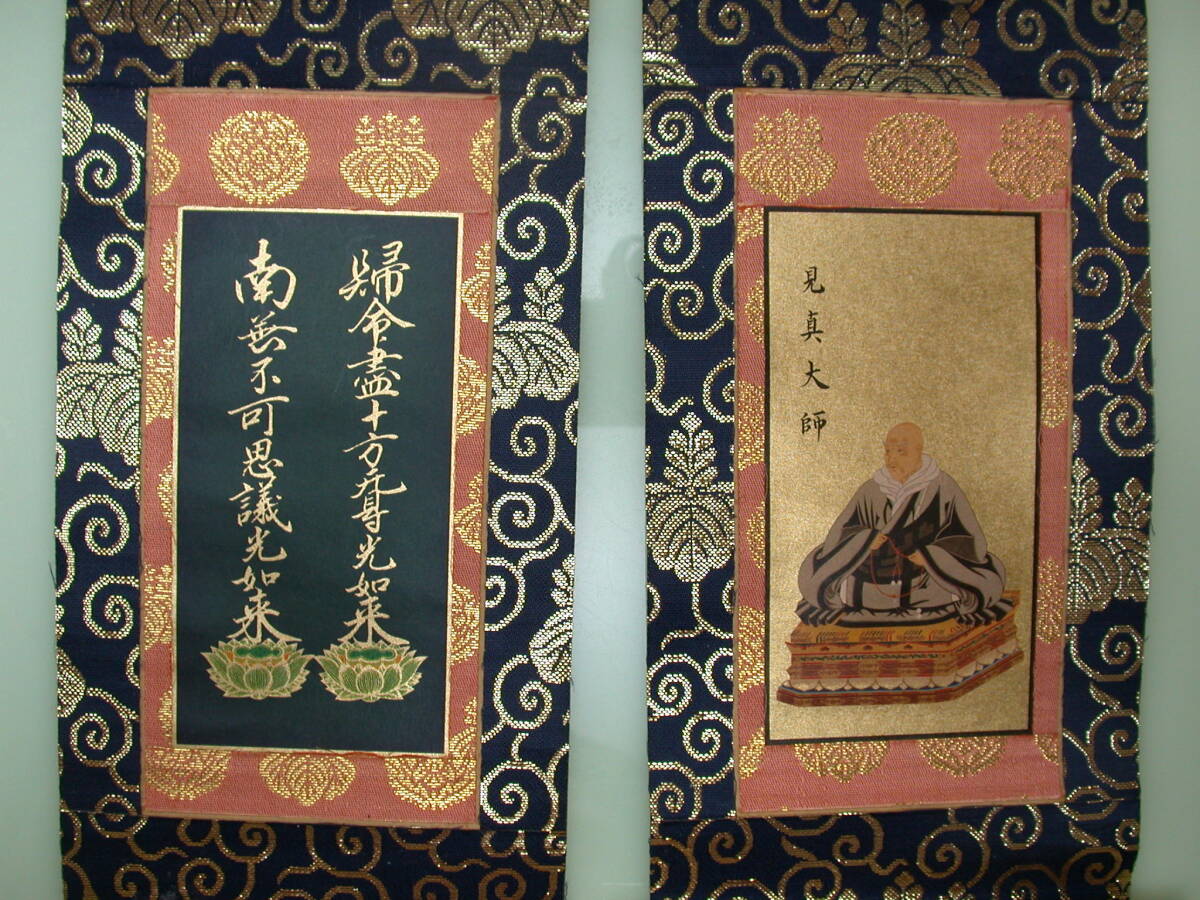 歸命盡十方无㝵光如来
南無不可思議光如来
見真大師